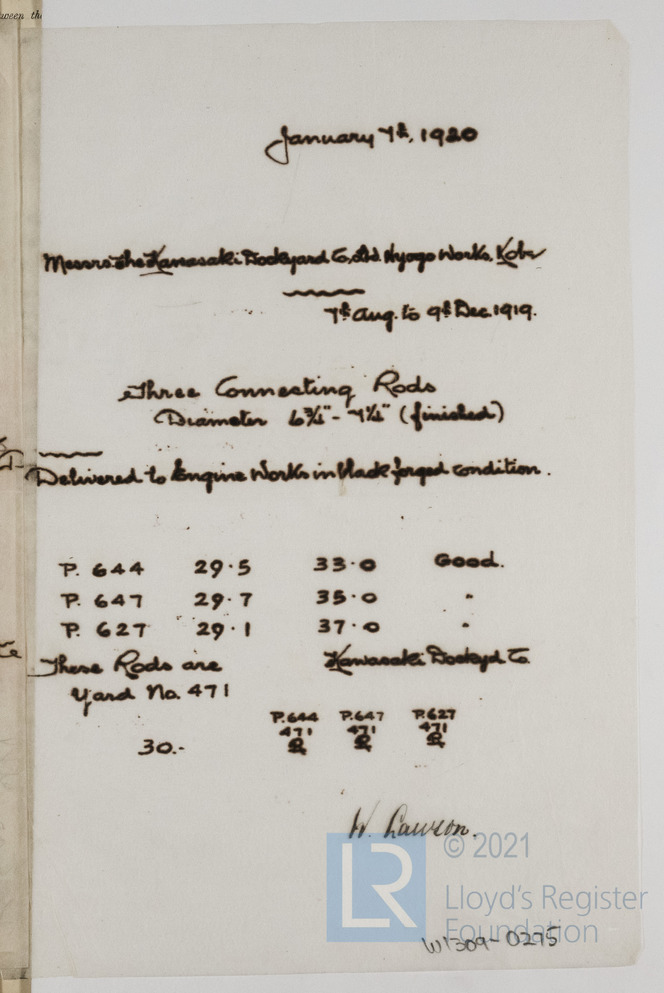 ween the
January 7th, 1920
Messrs The Kawasaki Dockyard Co, Ltd Hyogo Works, Kobe
7th Aug. to 9th Dec. 1919.
Three Connecting Rods
Diameter 6¾" - 7¼" (finished)
Delivered to Engine Works in black forged condition.
P. 644 29.5 33.0 Good.
P. 647 29.7 35.0 "
P. 627 29.1 37.0 "
These Rods are Kawasaki Dockyd Co.
Yard No. 471
P.644 P.647 P.627
471 471 471
30.-
W. Lawson.
© 2021
LR Lloyd's Register
Foundation
W1309-0275